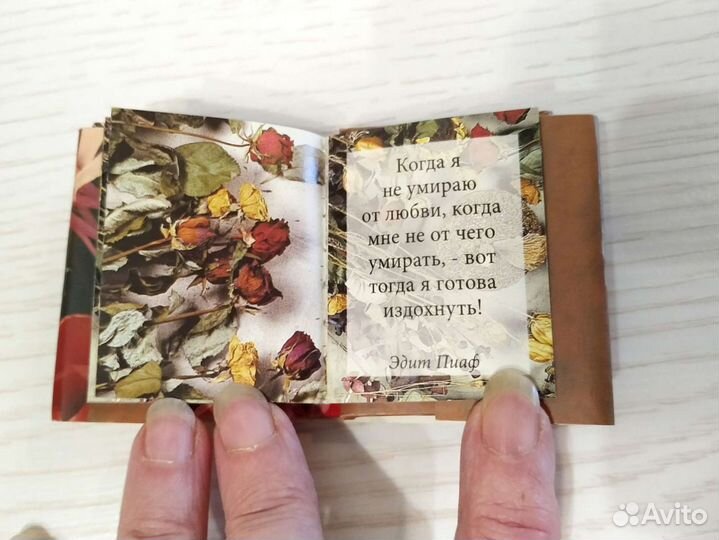 Когда я
не умираю
от любви, когда
мне не от чего
умирать, - вот
тогда я готова
издохнуть!
Эдит Пиаф
Avito